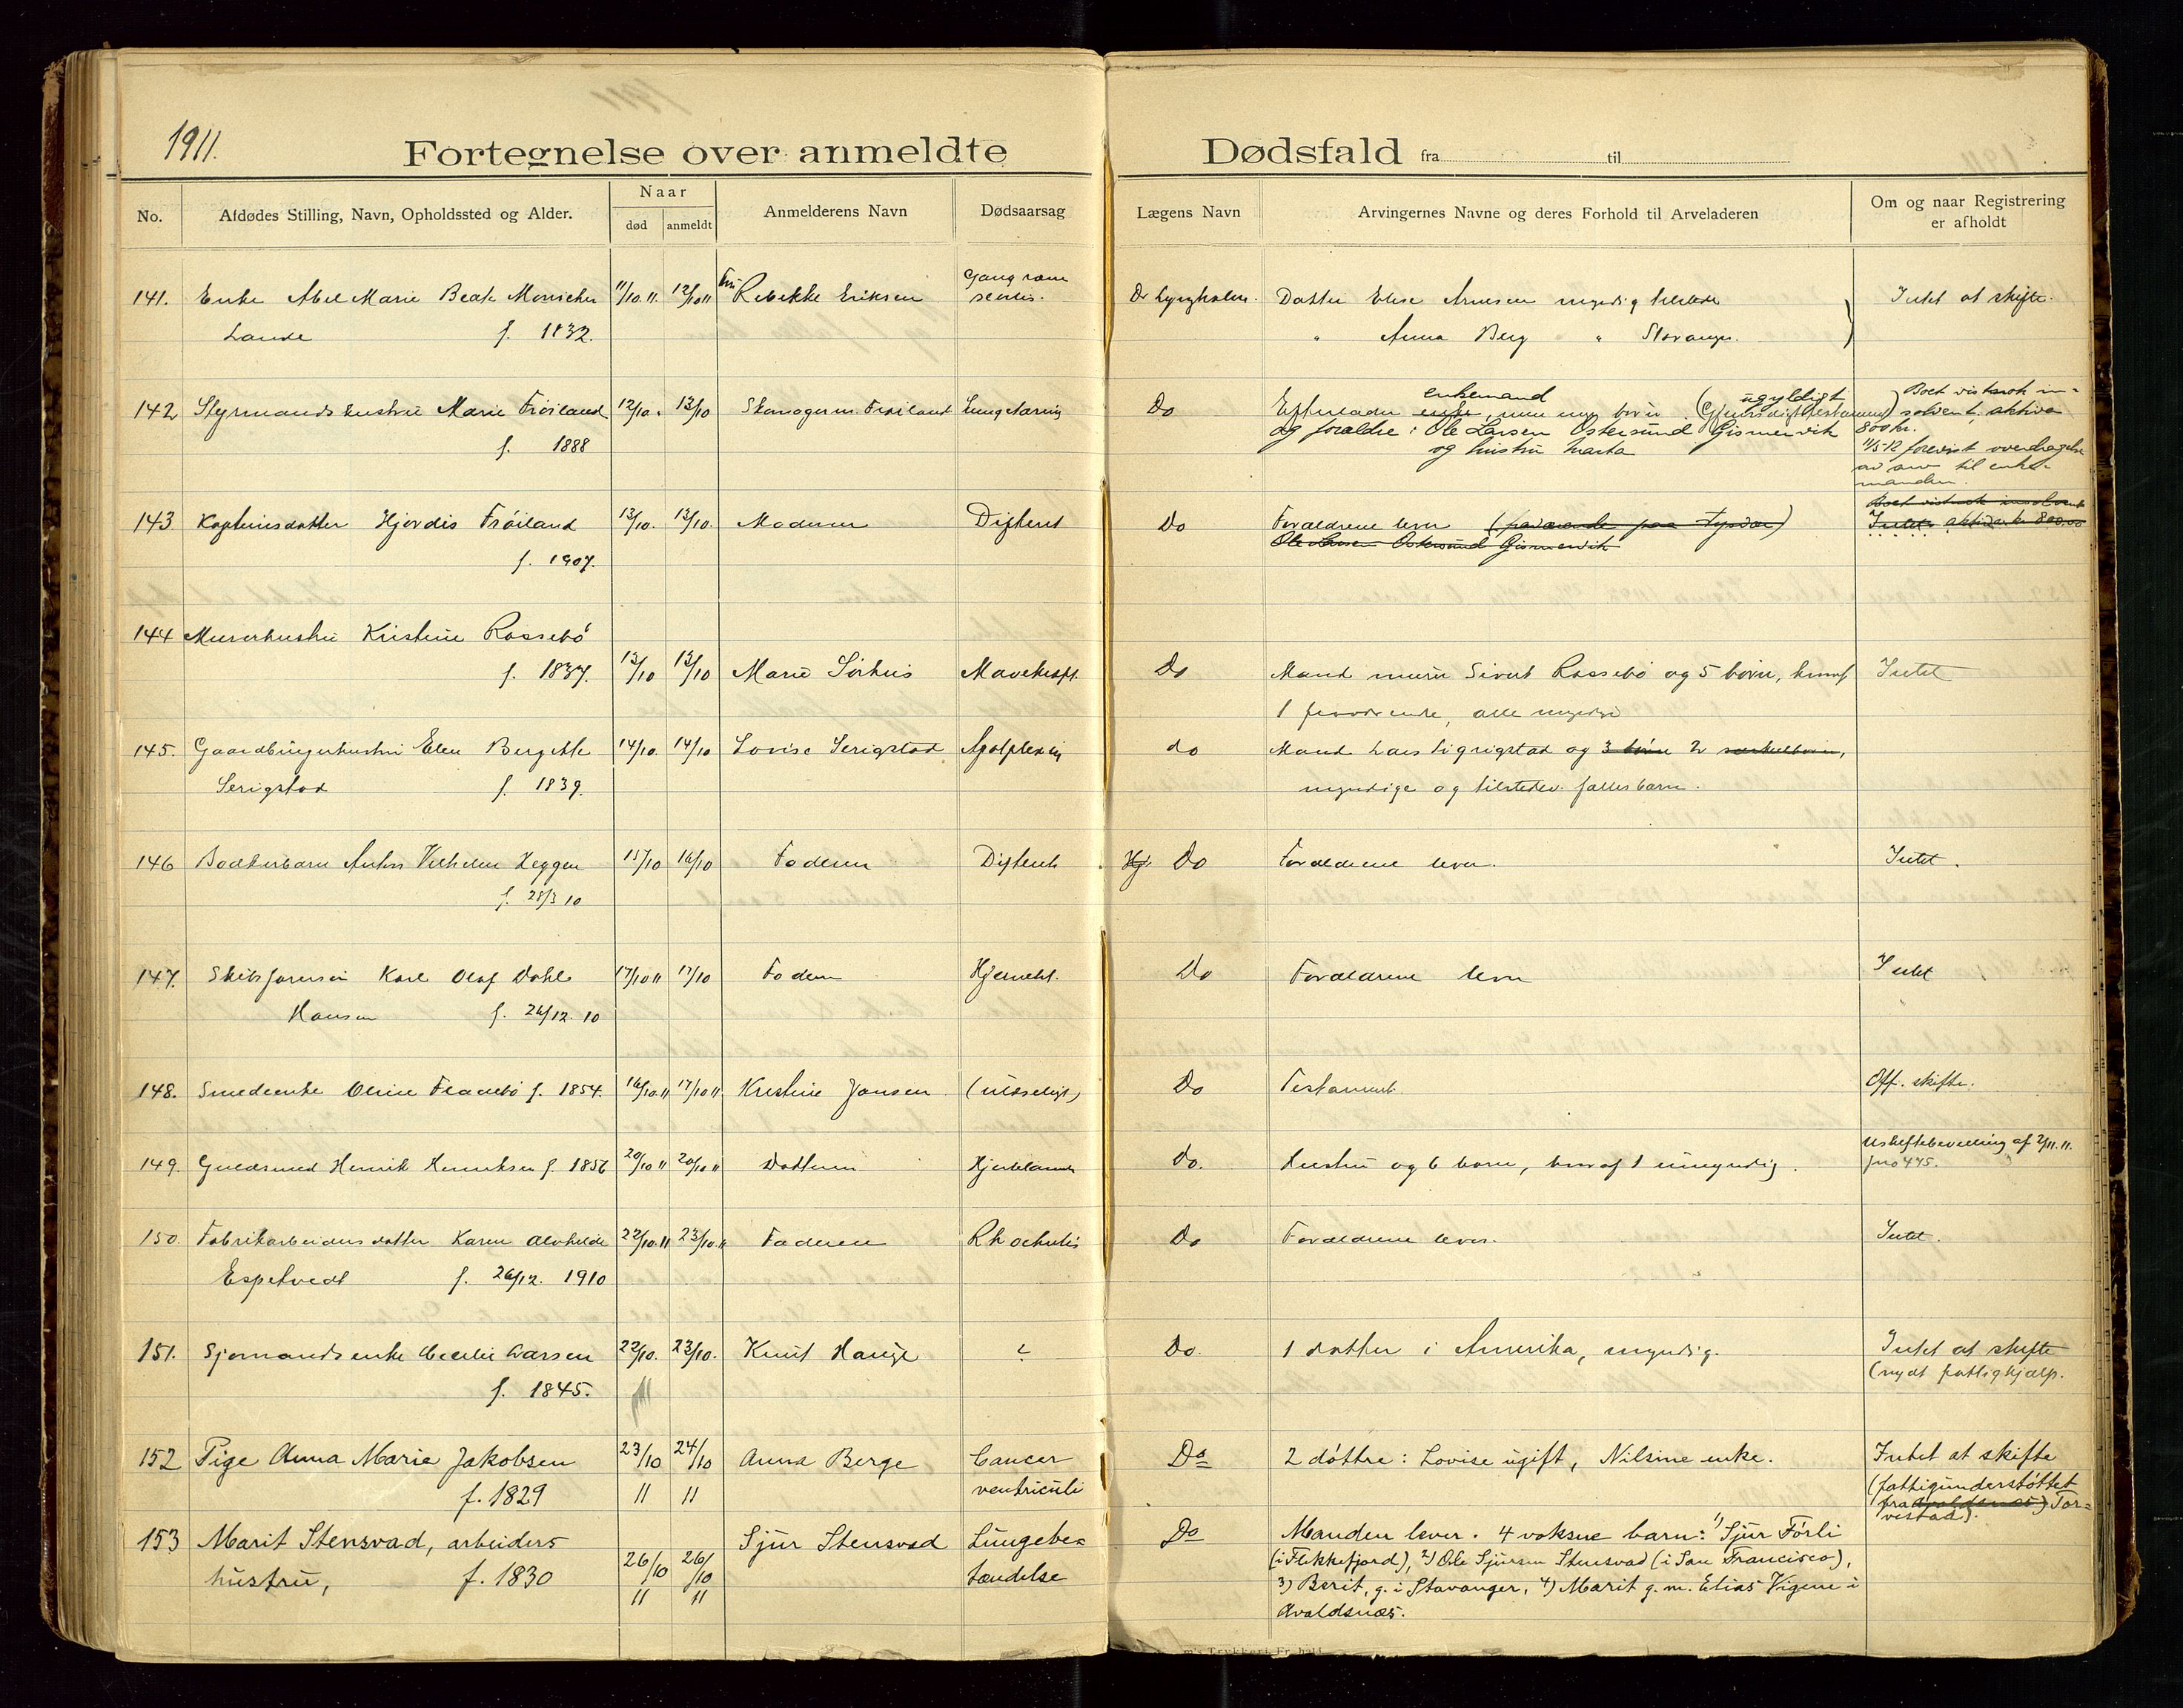 1911.
Fortegnelse over anmeldte Dødsfald fra til
No.
Afdødes Stilling, Navn, Opholdssted og Alder.
Naar
død
anmeldt
Anmelderens Navn
Dødsaarsag
Lægens Navn
Arvingernes Navne og deres Forhold til Arveladeren
Om og naar Registrering
er afholdt
141. Enke Abel Marie Beate 11/10.11. 12/10 11 Fru Rebekke Eriksen Gangræna
senilis.
Datter Elise Arnesen myndig tilstede Intet at skifte.
Lande f. 1832.
" Anna Berg " Stavanger.
142 Styrmandshustru Marie Fröiland 12/10. 13/10 Fröiland Lungetæring
f. 1888
Do Efterlader enke, enkemand ingen børn. (ugyldigt
og forældre: Ole Larsen Østersund Gismervik
og hustru Marta
Boet vistnok in-
solvent, aktiva
800 kr.
11/5-12 forevist overdragelse
av arv til enke-
manden.
143 Kapteinsdatter Hjørdis Fröiland 13/10. 13/10. Moderen Difterit
f. 1907.
Do Forældrene lever (fraværende paa Tysvær)
Ole Larsen Østersund Gismervik
Boet vistnok insolvent
Intet aktiva kr 800.00
144 Murerhustru Kristine Rossebö
f. 1837. 13/10 13/10 Marie Sörhus
Do Mand murer Sivert Rossebö og 5 börn, hvoraf Intet
1 fraværende, alle myndige
145. Gaardbrugerhustru Elen Bergitte 14/10. 14/10 Lovise Serigstad Apoplexi
Serigstad f. 1839.
do Mand Lars Sigrigstad og 3 børn 2 særkulbørn,
myndige og tilstede. fællesbarn.
146 Bødkerbarn Anton Vilhelm Heggen 15/10 16/10 Faderen Difterit
f. 28/3 10
Do Forældrene lever. Intet.
147. Skibsförersön Karl Olaf Dahl 17/10 11 17/10 Faderen
Hansen f. 26/12. 10
Do Forældrene lever Intet
148. Smedeenke Oline Fladebö f. 1854. 16/10.11 17/10 11. Kristine Jansen (uleseligt)
Do Testament. Off. skifte.
149. Guldsmed Henrik Henriksen f. 1856 20/10 11 20/10 11 Datteren
do. Hustru og 6 børn, hvoraf 1 umyndig. Uskiftebevilling af 2/11.11.
jno 475.
150. Fabrikarbeidersdatter Karen Alvhilde 22/10.11 23/10.11 Faderen Rhachitis
Espetvedt f. 26/12. 1910
Do Forældrene lever. Intet.
151. Sjømandsenke Cecilie Larsen 22/10. 23/10. Knut Hauge ?
f. 1845.
Do. 1 datter i Amerika, myndig. Intet at skifte
(nydt fattighjælp.
152 Pige Anna Marie Jakobsen 23/10 11 24/10 11 Anna Berge Cancer
f. 1829 ventriculi
Do 2 döttre: Lovise ugift, Nilsine enke. Intet at skifte
(fattigunderstöttet
fra Avaldsnæs) Tor-
vestad).
153 Marit Stensvad, arbeiders Sjur Stensvad Lungebe-
hustru, f. 1830 26/10 11 26/10 11 tændelse
Do Manden lever. 4 voksne barn: 1) Sjur Förli
(i Flekkefjord), 2) Ole Sjursen Stensvad (i San Francisco),
3) Berit, g. i Stavanger, 4) Marit g. m. Elias Vigene i
Avaldsnæs.